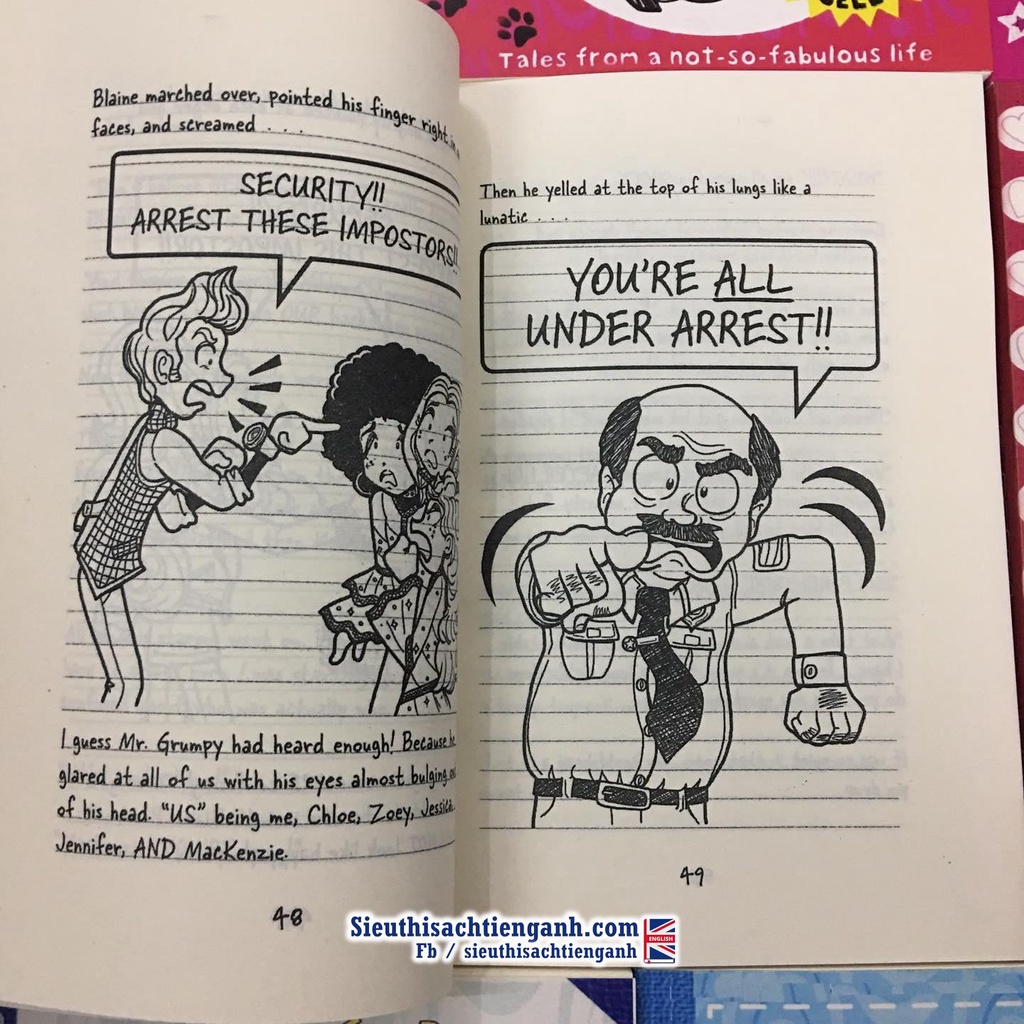 Tales from a not-so-fabulous life
Blaine marched over, pointed his finger right
faces, and screamed . . .
SECURITY!!
ARREST THESE IMPOSTORS!!
I guess Mr. Grumpy had heard enough! Because he
glared at all of us with his eyes almost bulging
of his head. "US" being me, Chloe, Zoey, Jessica,
Jennifer, AND MacKenzie.
48
Then he yelled at the top of his lungs like a
lunatic . . .
YOU'RE ALL
UNDER ARREST!!
49
Sieuthisachtienganh.com
ENGLISH
Fb / sieuthisachtienganh